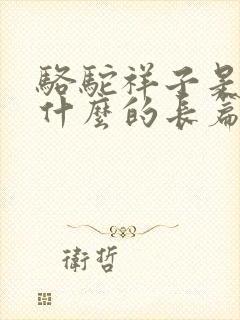 駱駝祥子是
什麼的長篇
衛哲